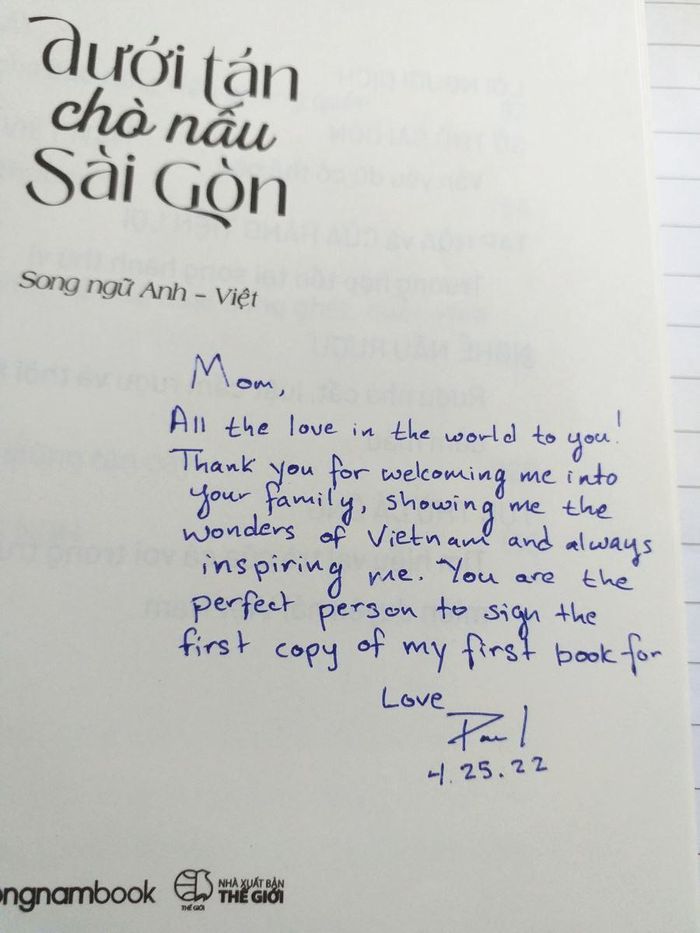 dưới tán
chò nâu
Sài Gòn
Song ngữ Anh - Việt
Mom,
All the love in the world to you!
Thank you for welcoming me into
your family, showing me the
wonders of Vietnam and always
inspiring me. You are the
perfect person to sign the
first copy of my first book for
Love
Paul
4.25.22
ongnambook
NHÀ XUẤT BẢN
THẾ GIỚI
THẾ GIỚI